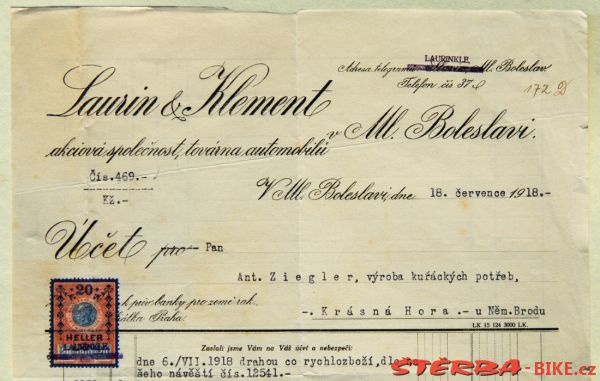 LAURINKLE,
Adresa telegramů: Ml. Boleslav
Telefon čís 37
172
Laurin & Klement
v Ml. Boleslavi.
akciová společnost, továrna automobilů
Čís.469.-
Kž.-
V Ml. Boleslavi, dne 18. července 1918.-
Účet pro Pan
Ant. Ziegler, výroba kuřáckých potřeb,
-. Krásná Hora.- u Něm.Brodu
20
k priv. banky pro země rak.
Praha.
HELLER
LAURINKLE,
LK 15 124 3000 LK.
Zaslali jsme Vám na Váš účet a nebezpečí:
dne 6./VII.1918 drahou co rychlozboží,
šeho návěští čís.12541.-
STERBA-BIKE.cz